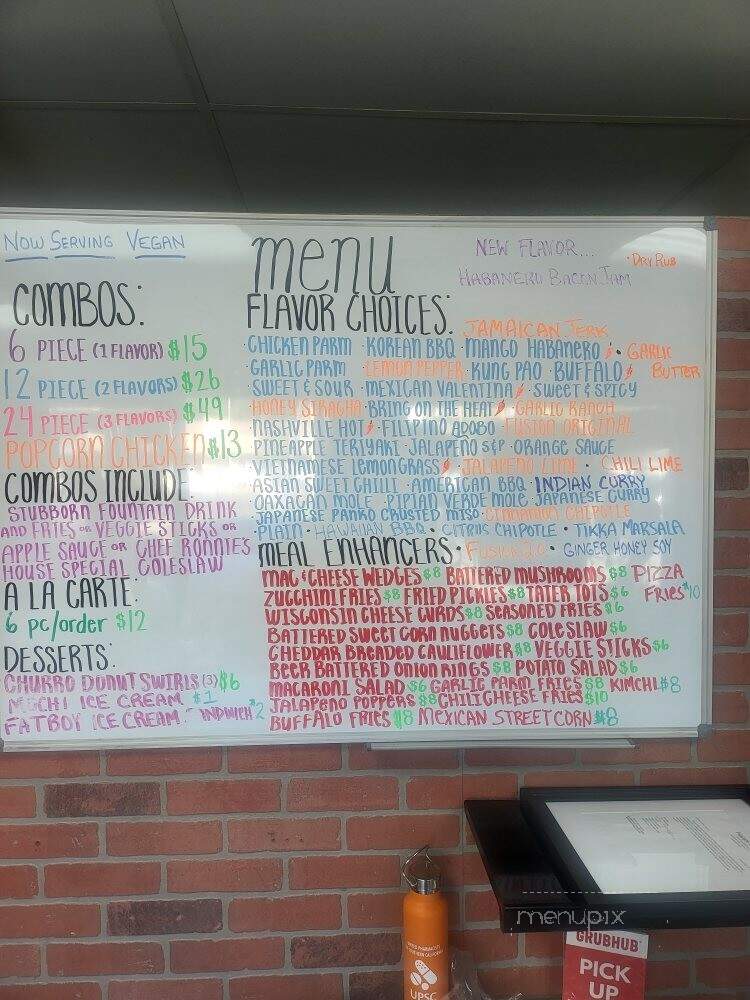 NOW SERVING VEGAN
COMBOS:
6 PIECE (1 FLAVOR) $15
12 PIECE (2 FLAVORS) $26
24 PIECE (3 FLAVORS) $49
POPCORN CHICKEN $13
COMBOS INCLUDE:
STUBBORN FOUNTAIN DRINK
AND FRIES OR VEGGIE STICKS OR
APPLE SAUCE OR CHEF RONNIE'S
HOUSE SPECIAL COLESLAW
A LA CARTE:
6 pc/order $12
DESSERTS:
CHURRO DONUT SWIRLS (3) $6
MOCHI ICE CREAM $1
FATBOY ICE CREAM $2
menu
NEW FLAVOR...
HABANERO BACON JAM
• DRY RUB
FLAVOR CHOICES:
JAMAICAN JERK
• CHICKEN PARM • KOREAN BBQ • MANGO HABANERO • GARLIC BUTTER
• GARLIC PARM • LEMON PEPPER • KUNG PAO • BUFFALO
• SWEET & SOUR • MEXICAN VALENTINA • SWEET & SPICY
• HONEY SIRACHA • BRING ON THE HEAT • GARLIC RANCH
• NASHVILLE HOT • FILIPINO ADOBO • FUSION ORIGINAL
• PINEAPPLE TERIYAKI • JALAPENO S&P • ORANGE SAUCE
• VIETNAMESE LEMONGRASS • JALAPENO LIME • CHILI LIME
• ASIAN SWEET CHILLI • AMERICAN BBQ • INDIAN CURRY
• OAXACAN MOLE • PIPIAN VERDE MOLE • JAPANESE CURRY
• JAPANESE PANKO CRUSTED MISO • CINNAMON CHIPOTLE
• PLAIN • HAWAIIAN BBQ • CITRUS CHIPOTLE • TIKKA MARSALA
MEAL ENHANCERS:
• GINGER HONEY SOY
MAC & CHEESE WEDGES $8 BATTERED MUSHROOMS $8 PIZZA FRIES $10
ZUCCHINI FRIES $8 FRIED PICKLES $8 TATER TOTS $6
WISCONSIN CHEESE CURDS $8 SEASONED FRIES $6
BATTERED SWEET CORN NUGGETS $8 COLESLAW $6
CHEDDAR BREADED CAULIFLOWER $8 VEGGIE STICKS $6
BEER BATTERED ONION RINGS $8 POTATO SALAD $6
MACARONI SALAD $6 GARLIC PARM FRIES $8 KIMCHI $8
JALAPENO POPPERS $8 CHILI CHEESE FRIES $10
BUFFALO FRIES $8 MEXICAN STREET CORN $8
menupix
GRUBHUB
PICK
UP
UPSC